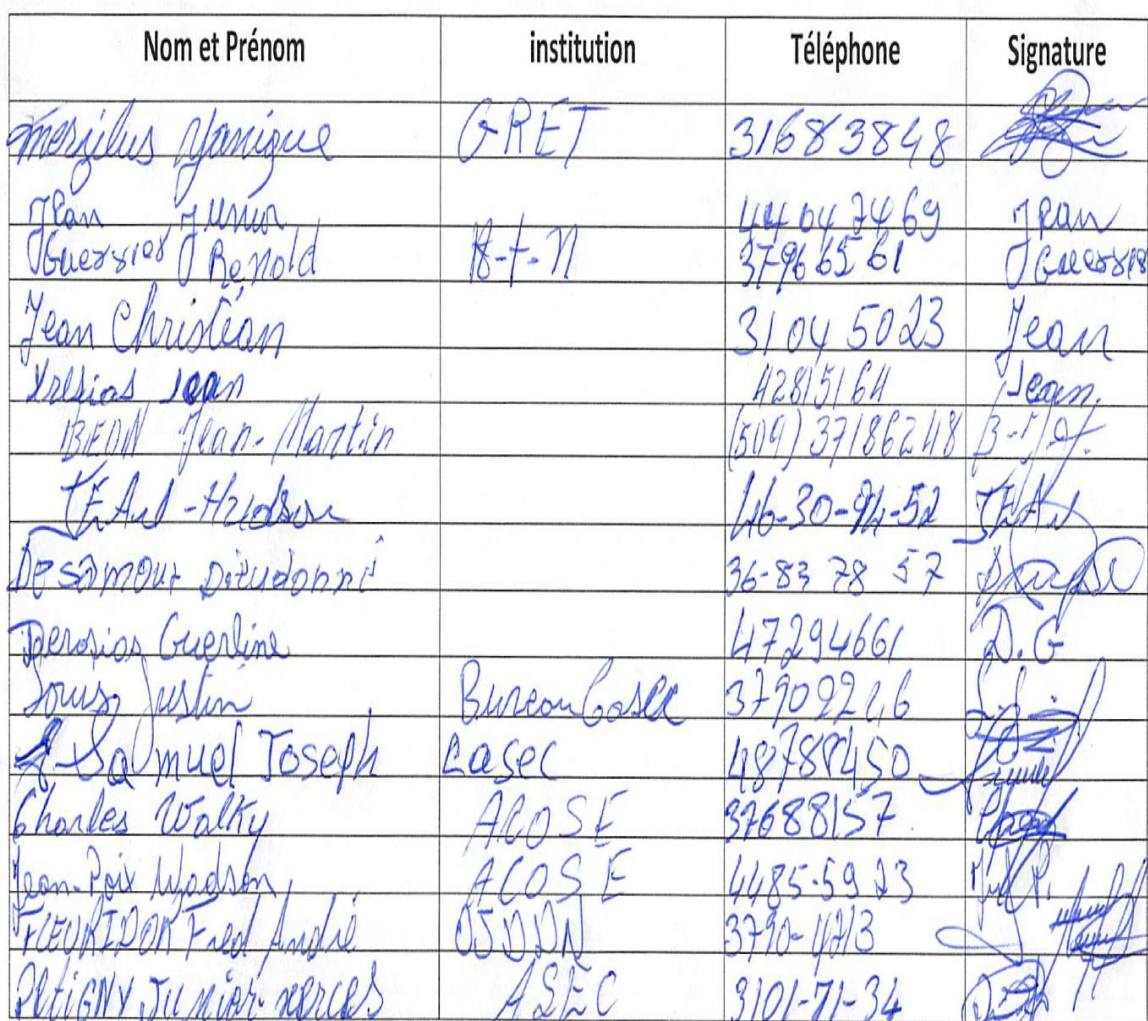 Nom et Prénom institution Téléphone Signature
Merzilus Yanique GRET 31683848
Jean Junior 44047469 Jean
Guerrier Renold 37966561 Guerrier
Jean Christean 3104 5023 Jean
Jean 42815164 Jean
Jean-Martin (509) 37186248
JEAN-Hudson 46-30-94-52 JEAN
Desamour Dieudonné 36-83 78 57
Derosias Guerline 47294661 D.G
Louis Justin Bureau Casec
Samuel Joseph Casec 48788450
Charles Walky ACOSE 37688157
Jean-Poix Wadson ACOSE 4485-5923
FLEURIDOR Fred André
PETIGNY Junior-xerces ASEC 3101-71-34